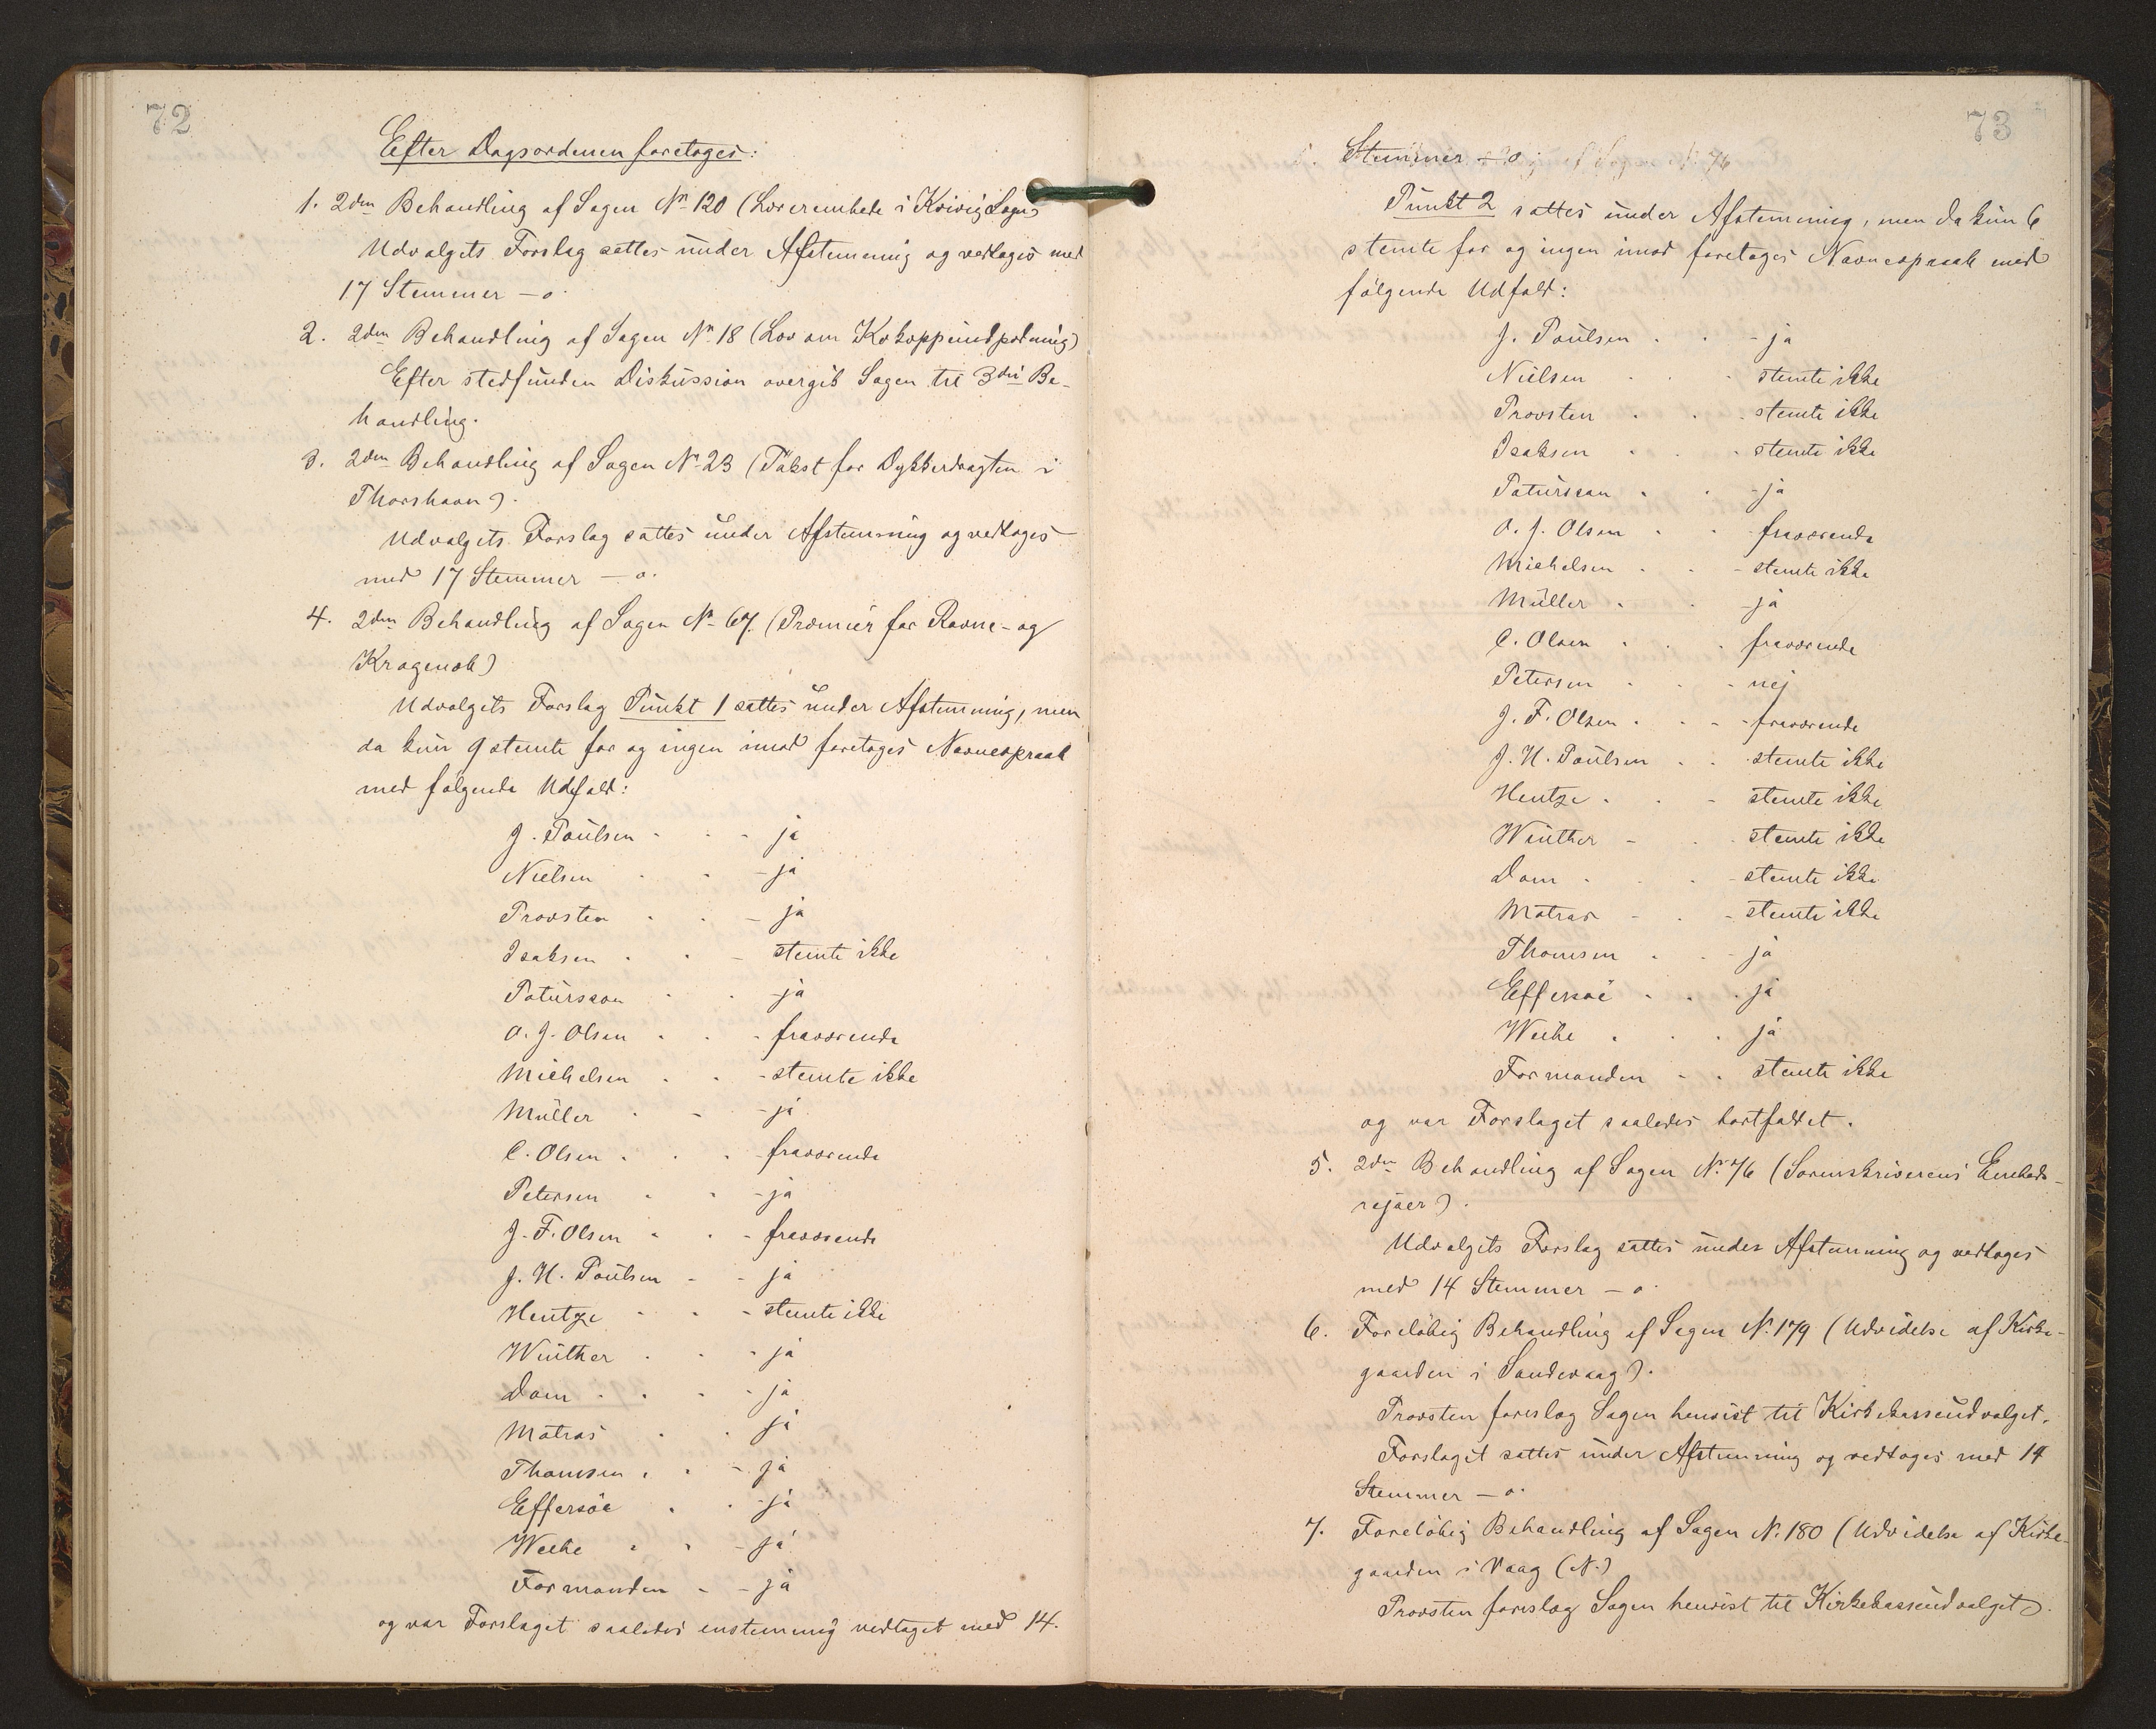 72
Efter Dagsordenen foretoges:
1. 2den Behandling af Sagen No 120 (Lærerembede i Kvivig Sogn)
Udvalgets Forslag sattes under Afstemning og vedtoges med
17 Stemmer – 0.
2. 2den Behandling af Sagen No 18 (Lov om Kokoppeindpodning)
Efter stedfunden Diskussion overgik Sagen til 3die Be-
handling.
3. 2den Behandling af Sagen No 23 (Takst for Dykkerdragten i
Thorshavn).
Udvalgets Forslag sattes under Afstemning og vedtoges
med 17 Stemmer – 0.
4. 2den Behandling af Sagen No 67. (Præmier for Ravne- og
Kragenæb)
Udvalgets Forslag Punkt 1 sattes under Afstemning, men
da kun 9 stemte for og ingen imod foretoges Navneopraab
med følgende Udfald:
J. Poulsen - - - ja
Nielsen - - - ja
Provsten - - - ja
Isaksen - - - stemte ikke
Patursson - - - ja
O. J. Olsen - - - fraværende
Michelsen - - - stemte ikke
Müller - - - ja
C. Olsen - - - fraværende
Petersen - - - ja
J. F. Olsen - - - fraværende
J. H. Poulsen - - ja
Hentze - - - stemte ikke
Winther - - - ja
Dam - - - ja
Matras - - ja
Thomsen - - - ja
Effersöe - - - ja
Weihe - - - ja
Formanden - - ja
og var Forslaget saaledes enstemmig vedtaget med 14.
73
Stemmer – 0.
Punkt 2 sattes under Afstemning, men da kun 6
stemte for og ingen imod foretoges Navneopraab med
følgende Udfald:
J. Poulsen - - - ja
Nielsen - - - stemte ikke
Provsten - - - stemte ikke
Isaksen - - - stemte ikke
Patursson - - - ja
O. J. Olsen - - - fraværende
Michelsen - - - stemte ikke
Müller - - - ja
C. Olsen - - - fraværende
Petersen - - - nej
J. F. Olsen - - - fraværende
J. H. Poulsen - - - stemte ikke
Hentze - - - stemte ikke
Winther - - - stemte ikke
Dam - - - stemte ikke
Matras - - - stemte ikke
Thomsen - - - ja
Effersöe - - - ja
Weihe - - - ja
Formanden - - stemte ikke
og var Forslaget saaledes bortfaldet.
5. 2den Behandling af Sagen No 76 (Sorenskriverens Embeds-
rejser).
Udvalgets Forslag sattes under Afstemning og vedtoges
med 14 Stemmer – 0.
6. Foreløbig Behandling af Sagen No. 179 (Udvidelse af Kirke-
gaarden i Sandevaag).
Provsten foreslog Sagen henvist til Kirkekasseudvalget.
Forslaget sattes under Afstemning og vedtoges med 14
Stemmer – 0.
7. Foreløbig Behandling af Sagen No. 180 (Udvidelse af Kirke-
gaarden i Vaag (N.)
Provsten foreslog Sagen henvist til Kirkekasseudvalget.